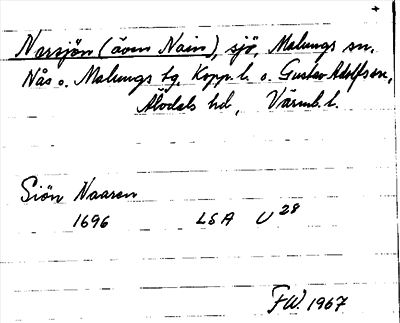 Narsjön (även Nain), sjö, Malungs sn,
Nås o. Malungs tg, Kopp. l. o. Gustav Adolfs sn,
Älvdals hd, Värml. l.
Siön Naaren
1696 LSA U28
FW. 1967